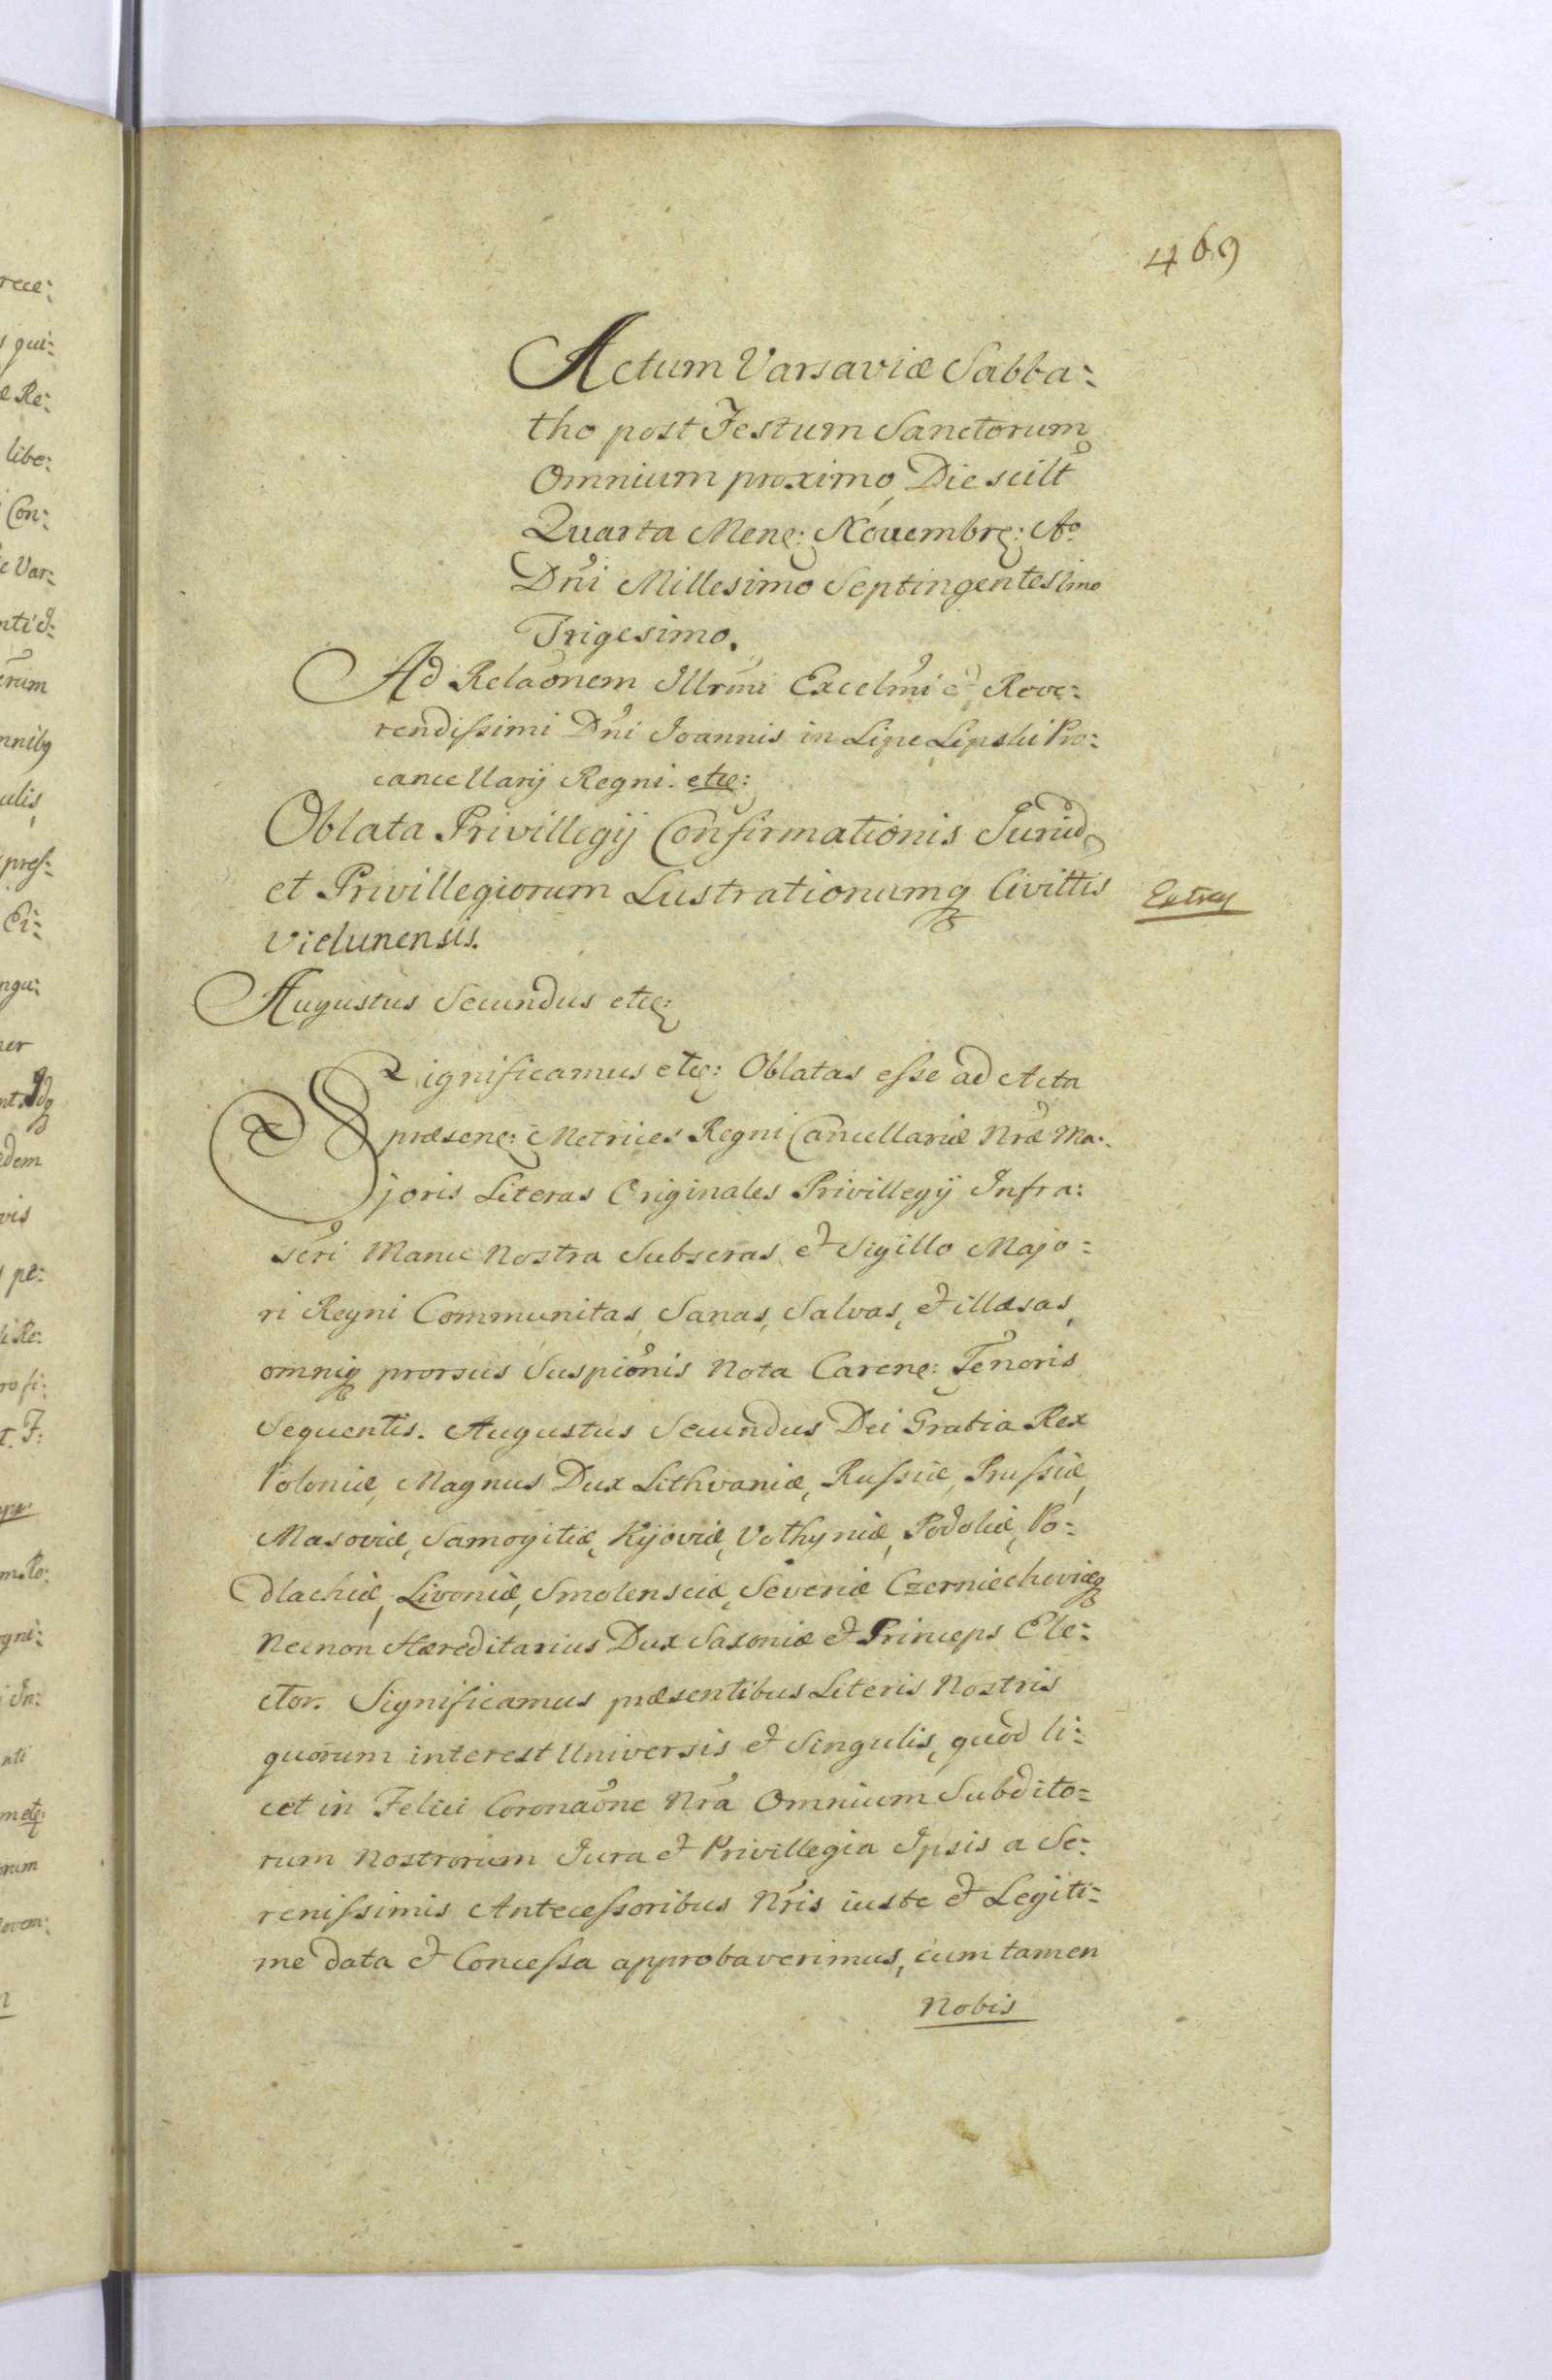 469
Actum Varsaviæ Sabba:
tho post Festum Sanctorum
Omnium proximo, Die scilt
Quarta Mens: Novembrs: Ao
Dni Millesimo Septingentesimo
Trigesimo.
Ad Relaonem Illrmi Excelmi et Reve:
rendissimi Dni Joannis in Lipe Lipski Pro:
cancellarij Regni. etc:
Oblata Privillegij Confirmationis Jurium
et Privillegiorum Lustrationumq Civittis
Vielunensis.
Extrad
Augustus Secundus etc:
Significamus etc: Oblatas esse ad Acta
præsens: Metrices Regni Cancellariæ Nræ Ma:
joris Literas Originales Privillegij Infra:
scri Manu Nostra Subscras, et Sigillo Majo:
ri Regni Communitas, Sanas, Salvas, et illæsas,
omniq prorsus Suspionis Nota Carens: Tenoris
Sequentis. Augustus Secundus Dei Gratia Rex
Poloniæ, Magnus Dux Lithvaniæ, Russiæ, Prussiæ,
Masoviæ, Samogitiæ, Kijoviæ, Volhyniæ, Podoliæ, Po:
dlachiæ, Livoniæ, Smolensciæ, Severiæ Czerniechoviæq
Necnon Hæreditarius Dux Saxoniæ et Princeps Ele:
ctor. Significamus præsentibus Literis Nostris
quorum interest Universis et Singulis, quod li:
cet in Felici Coronaone Nra Omnium Subdito=
rum Nostrorum Jura et Privillegia Ipsis a Se:
renissimis Antecessoribus Nris iuste et Legiti=
me data et Concessa approbaverimus, cum tamen
Nobis